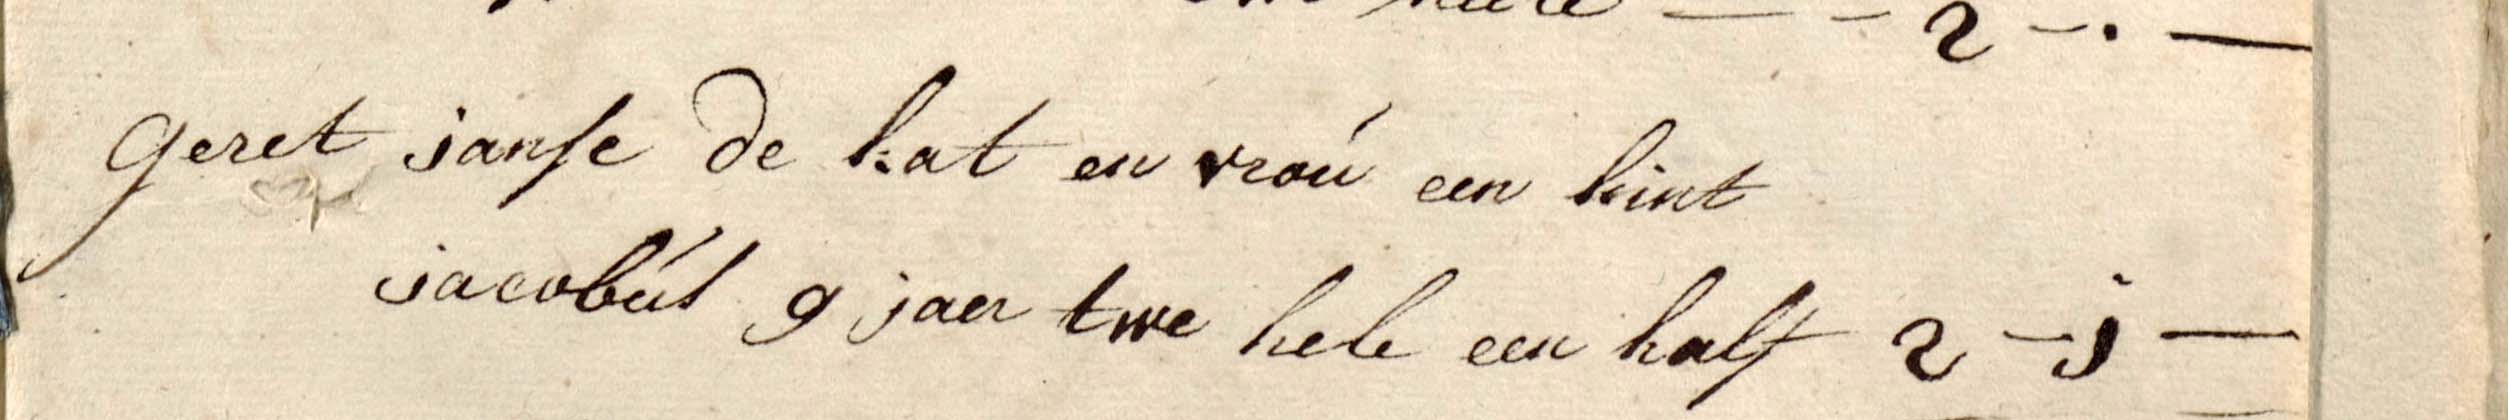 2 - . —
Geret janse de kat en vroú een kint
jacobús 9 jaer twe hele een half 2 - j —